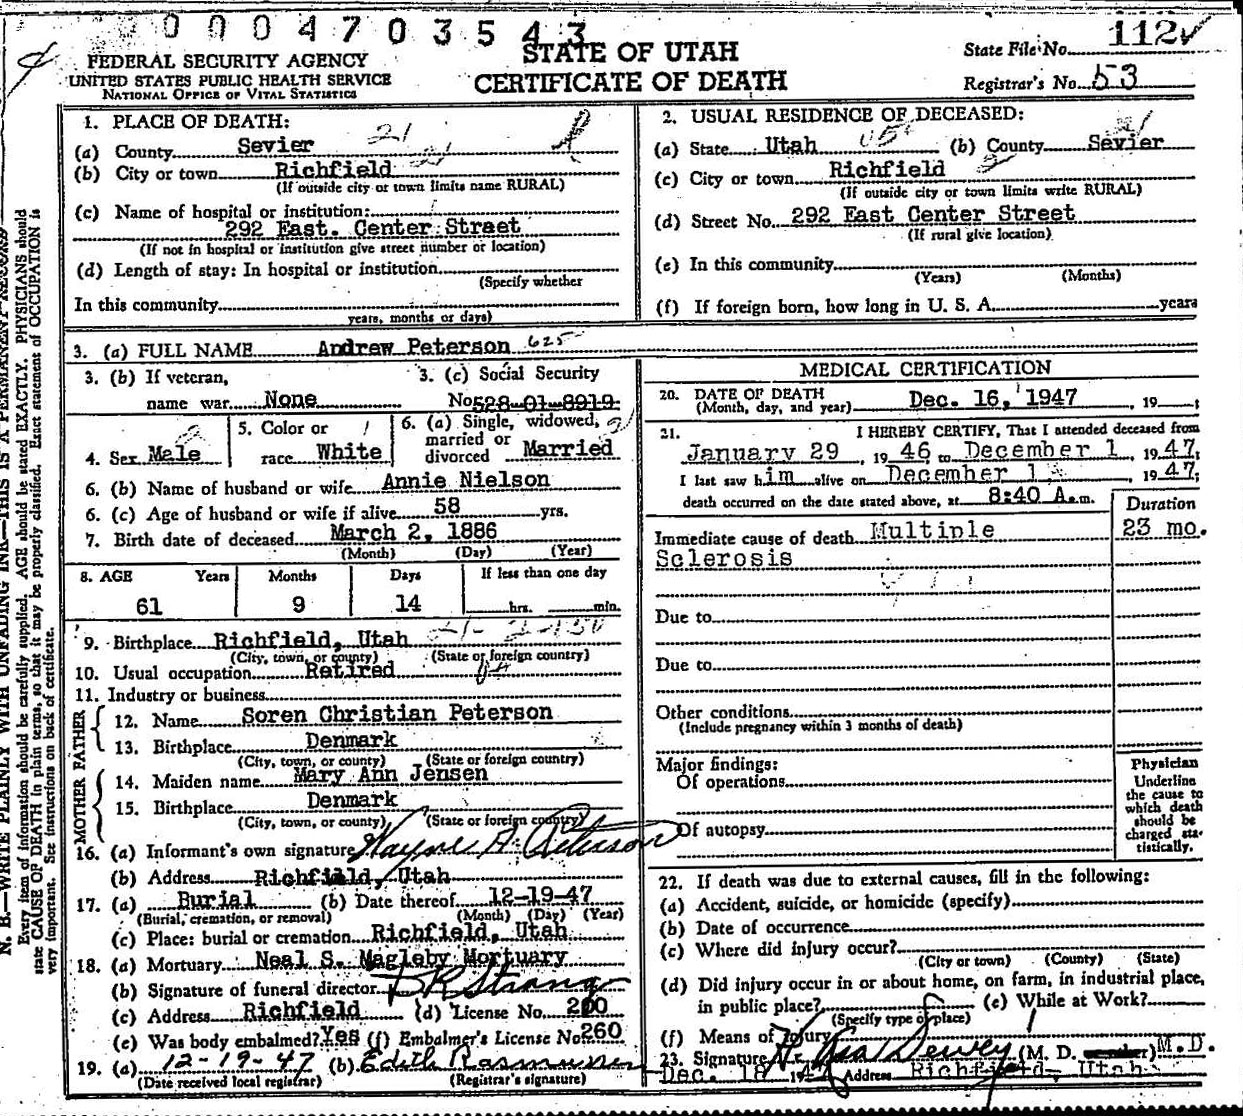 0004703543
STATE OF UTAH
CERTIFICATE OF DEATH
FEDERAL SECURITY AGENCY
UNITED STATES PUBLIC HEALTH SERVICE
NATIONAL OFFICE OF VITAL STATISTICS
State File No. 112
Registrar's No. 53
N. B.—WRITE PLAINLY WITH UNFADING INK—THIS IS A PERMANENT RECORD
Every item of information should be carefully supplied. AGE should be stated EXACTLY. PHYSICIANS should
state CAUSE OF DEATH in plain terms, so that it may be properly classified. Exact statement of OCCUPATION is
very important. See instructions on back of certificate.
1. PLACE OF DEATH: 21
(a) County Sevier
(b) City or town Richfield
(If outside city or town limits name RURAL)
(c) Name of hospital or institution:
292 East. Center Street
(If not in hospital or institution give street number or location)
(d) Length of stay: In hospital or institution
(Specify whether
In this community
years, months or days)
2. USUAL RESIDENCE OF DECEASED:
(a) State Utah (b) County Sevier
(c) City or town Richfield
(If outside city or town limits write RURAL)
(d) Street No. 292 East Center Street
(If rural give location)
(e) In this community
(Years) (Months)
(f) If foreign born, how long in U. S. A. years
3. (a) FULL NAME Andrew Peterson 625
3. (b) If veteran,
name war None
3. (c) Social Security
No 528-01-8919
4. Sex Male
5. Color or
race White
6. (a) Single, widowed,
married or
divorced Married
6. (b) Name of husband or wife Annie Nielson
6. (c) Age of husband or wife if alive 58 yrs.
7. Birth date of deceased March 2, 1886
(Month) (Day) (Year)
8. AGE Years Months Days If less than one day
61 9 14 hrs. min.
9. Birthplace Richfield, Utah
(City, town, or county) (State or foreign country)
10. Usual occupation Retired
11. Industry or business
FATHER
12. Name Soren Christian Peterson
13. Birthplace Denmark
(City, town, or county) (State or foreign country)
MOTHER
14. Maiden name Mary Ann Jensen
15. Birthplace Denmark
(City, town, or county) (State or foreign country)
16. (a) Informant's own signature Wayne A. Peterson
(b) Address Richfield, Utah
17. (a) Burial (b) Date thereof 12-19-47
(Burial, cremation, or removal) (Month) (Day) (Year)
(c) Place: burial or cremation Richfield, Utah
18. (a) Mortuary Neal S. Magleby Mortuary
(b) Signature of funeral director
(c) Address Richfield (d) License No. 200
(e) Was body embalmed? Yes (f) Embalmer's License No. 260
19. (a) 12-19-47 (b) Edith Rasmussen
(Date received local registrar) (Registrar's signature)
MEDICAL CERTIFICATION
20. DATE OF DEATH
(Month, day, and year) Dec. 16, 1947 , 19 ;
21. I HEREBY CERTIFY, That I attended deceased from
January 29 , 19 46, to December 1 , 19 47;
I last saw him alive on December 1 , 19 47;
death occurred on the date stated above, at 8:40 A.m.
Duration
Immediate cause of death Multiple 23 mo.
Sclerosis
Due to
Due to
Other conditions
(Include pregnancy within 3 months of death)
Major findings:
Of operations
Of autopsy
Physician
Underline
the cause to
which death
should be
charged sta-
tistically.
22. If death was due to external causes, fill in the following:
(a) Accident, suicide, or homicide (specify)
(b) Date of occurrence
(c) Where did injury occur?
(City or town) (County) (State)
(d) Did injury occur in or about home, on farm, in industrial place,
in public place? (e) While at Work?
(Specify type of place)
(f) Means of Injury
23. Signature Dewey (M. D. ) M.D.
Dec. 18 19 Address Richfield, Utah